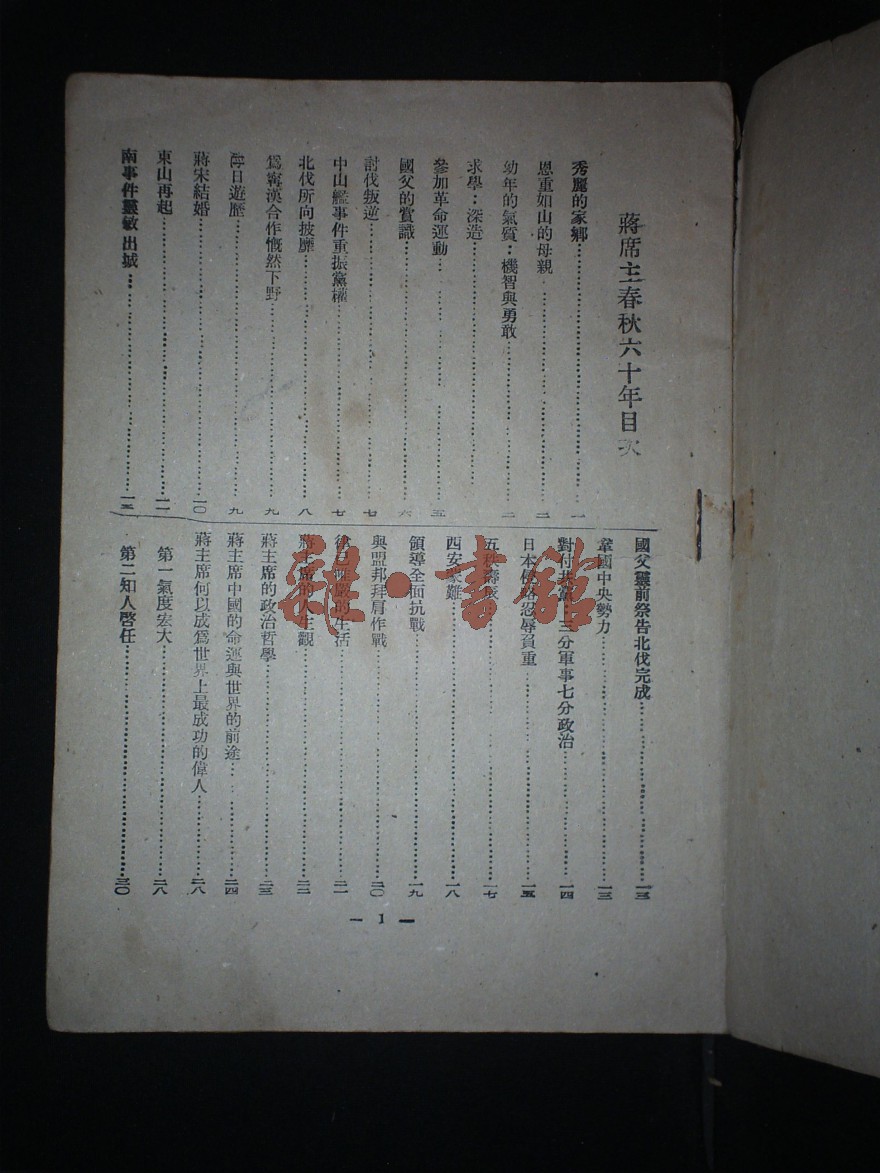 蔣席主春秋六十年目次
秀麗的家鄉……一
恩重如山的母親……二
幼年的氣質：機智與勇敢……二
求學：深造……
參加革命運動……五
國父的賞識……六
討伐叛逆……七
中山艦事件重振黨權……七
北伐所向披靡……八
爲寧漢合作慨然下野……九
日遊歷……九
蔣宋結婚……一〇
東山再起……一一
南事件靈敏出城……一三
國父靈前祭告北伐完成……一三
鞏國中央勢力……一三
對付共黨：三分軍事七分政治……一四
日本侵略忍辱負重……一五
五秩壽……一七
西安蒙難……一八
領導全面抗戰……一九
與盟邦拜肩作戰……二〇
律己謹嚴的生活……二一
蔣主席的人生觀……二二
蔣主席的政治哲學……二三
蔣主席中國的命運與世界的前途……二四
蔣主席何以成爲世界上最成功的偉人……二八
第一氣度宏大……二八
第二知人啓任……三〇
— 1 —
雜·書館